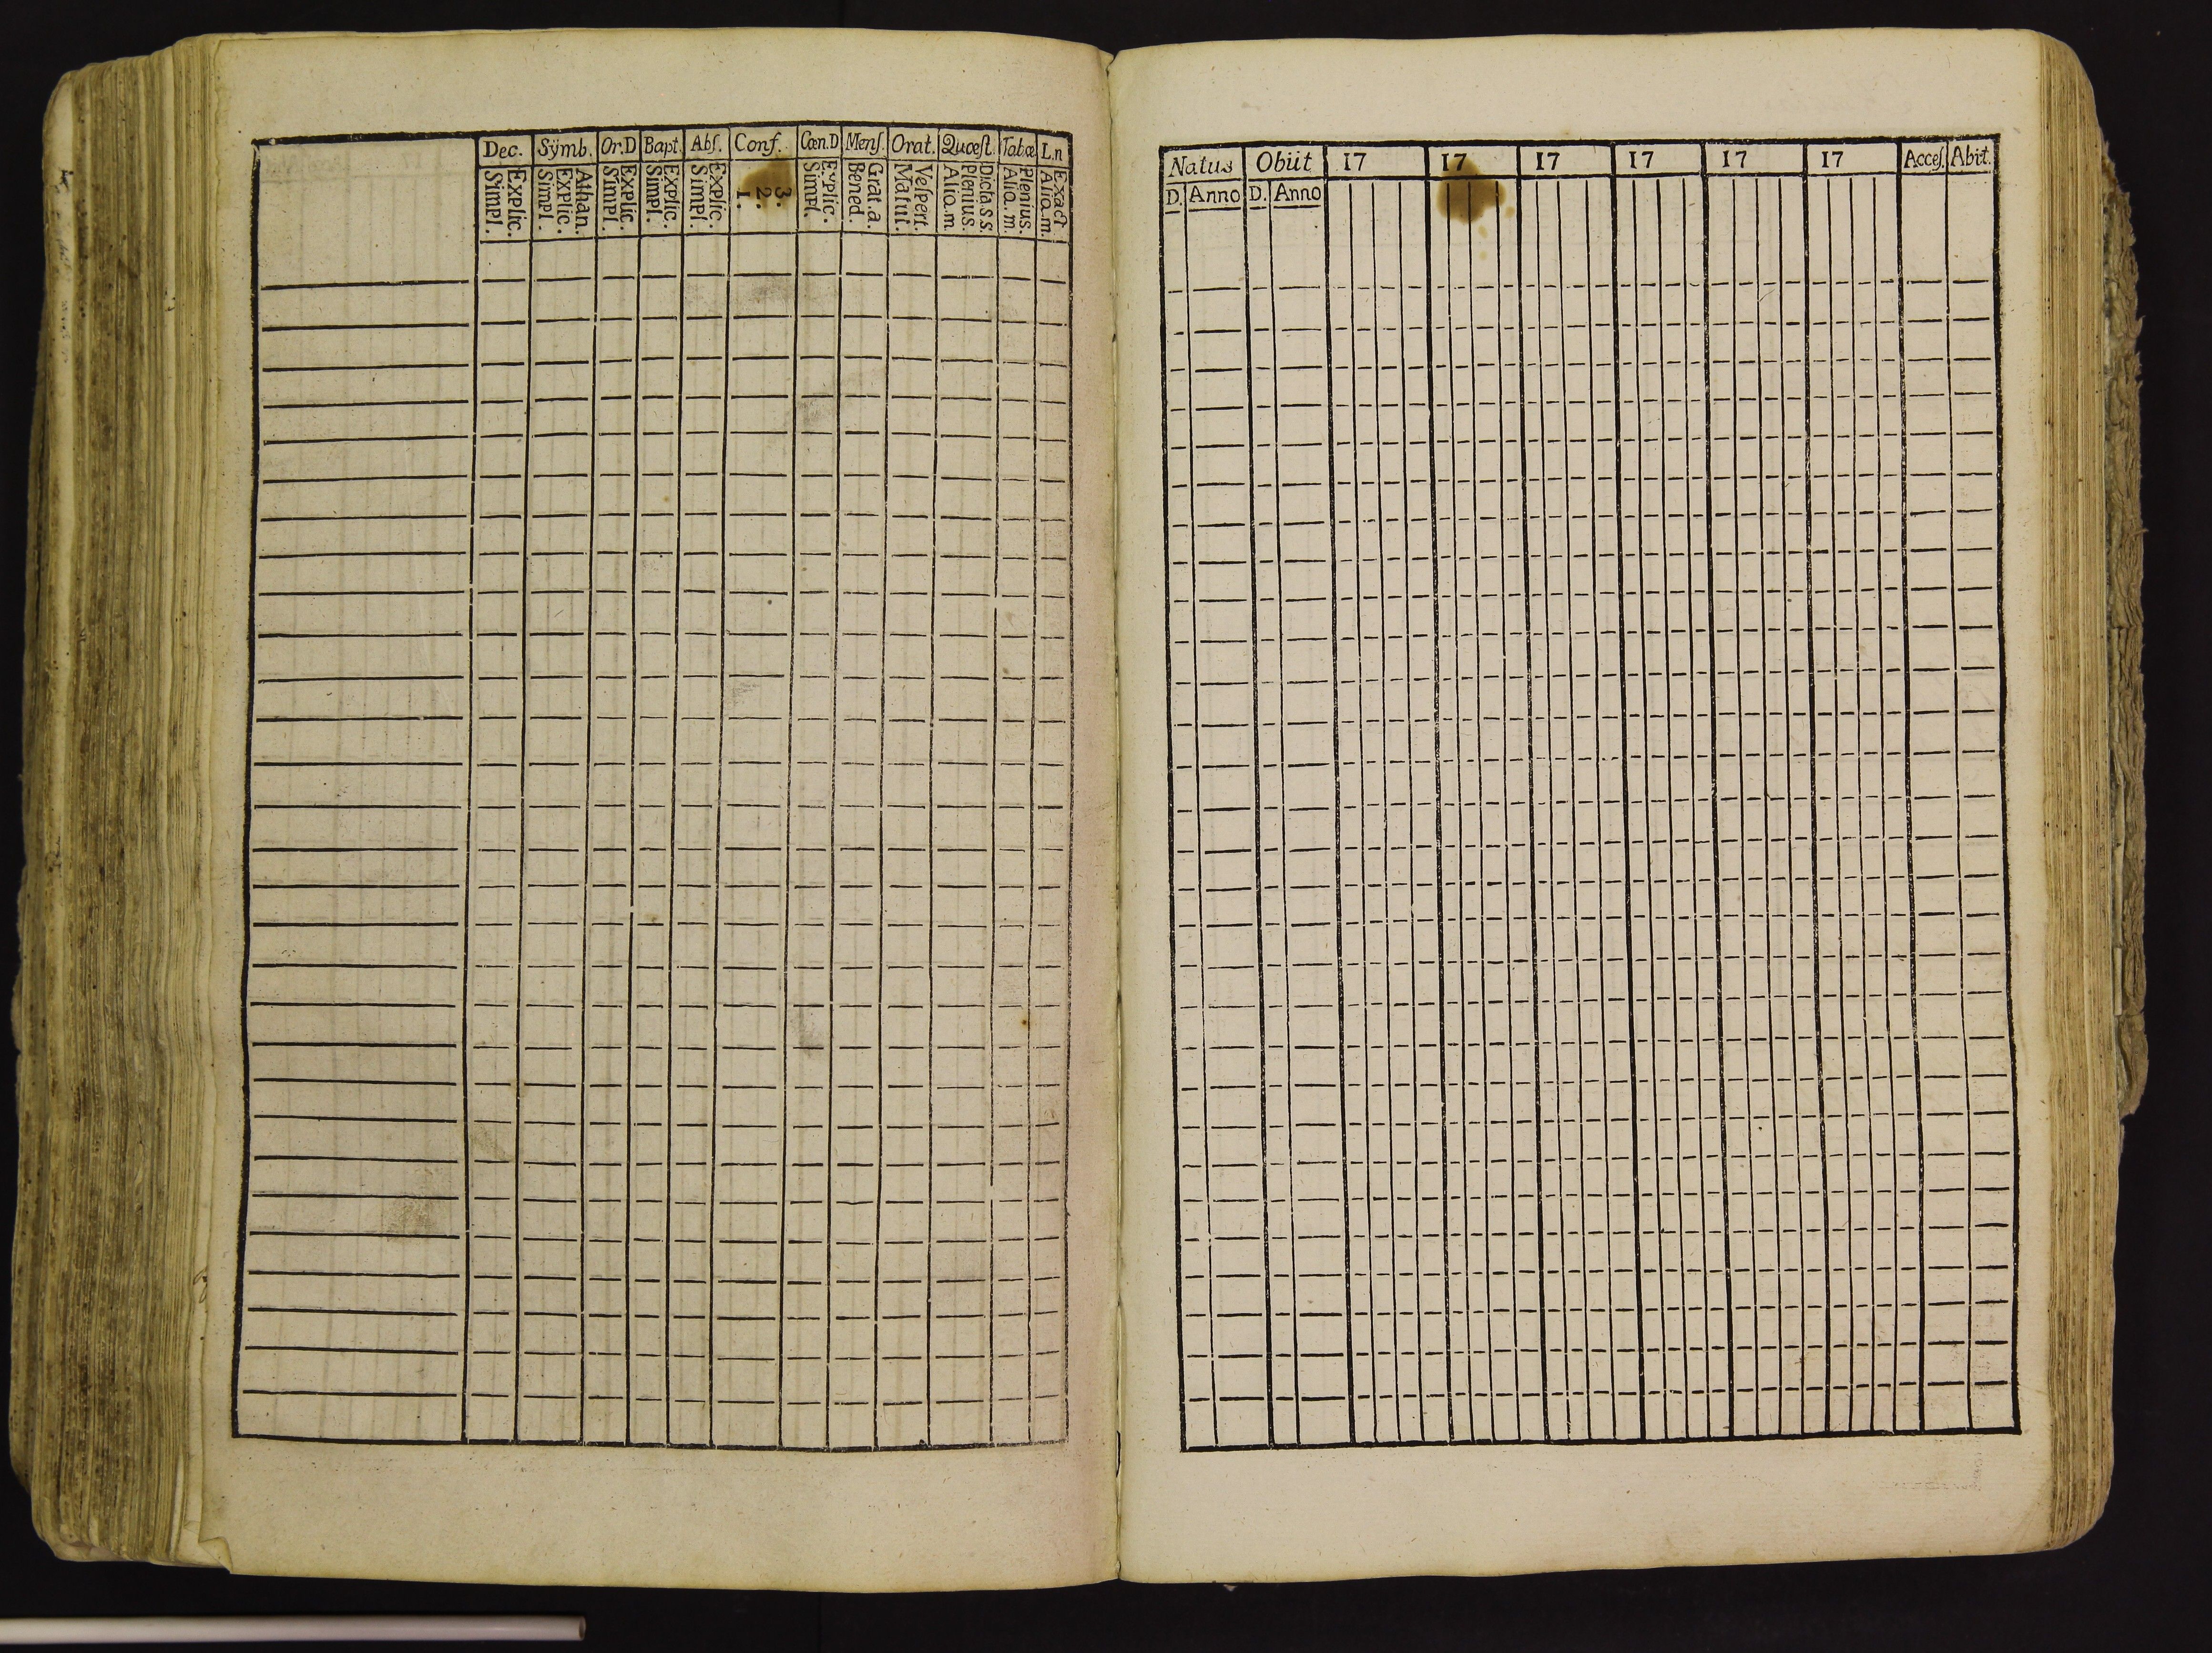 Dec. Sÿmb. Or.D Bapt. Abſ. Conf. Cœn.D Menſ. Orat. Quœſt. Tabœ L.n
Simpl. Explic. Simpl. Explic. Athan. Simpl. Explic. Simpl. Explic. Simpl. Explic. 1. 2. 3. Simpl. Explic. Bened. Grat.a. Matut. Veſpert. Aliq.m Plenius. Dicta.S.S. Aliq.m Plenius. Aliq.m. Exact
Natus Obiit 17 17 17 17 17 17 Acceſ. Abit.
D. Anno D. Anno